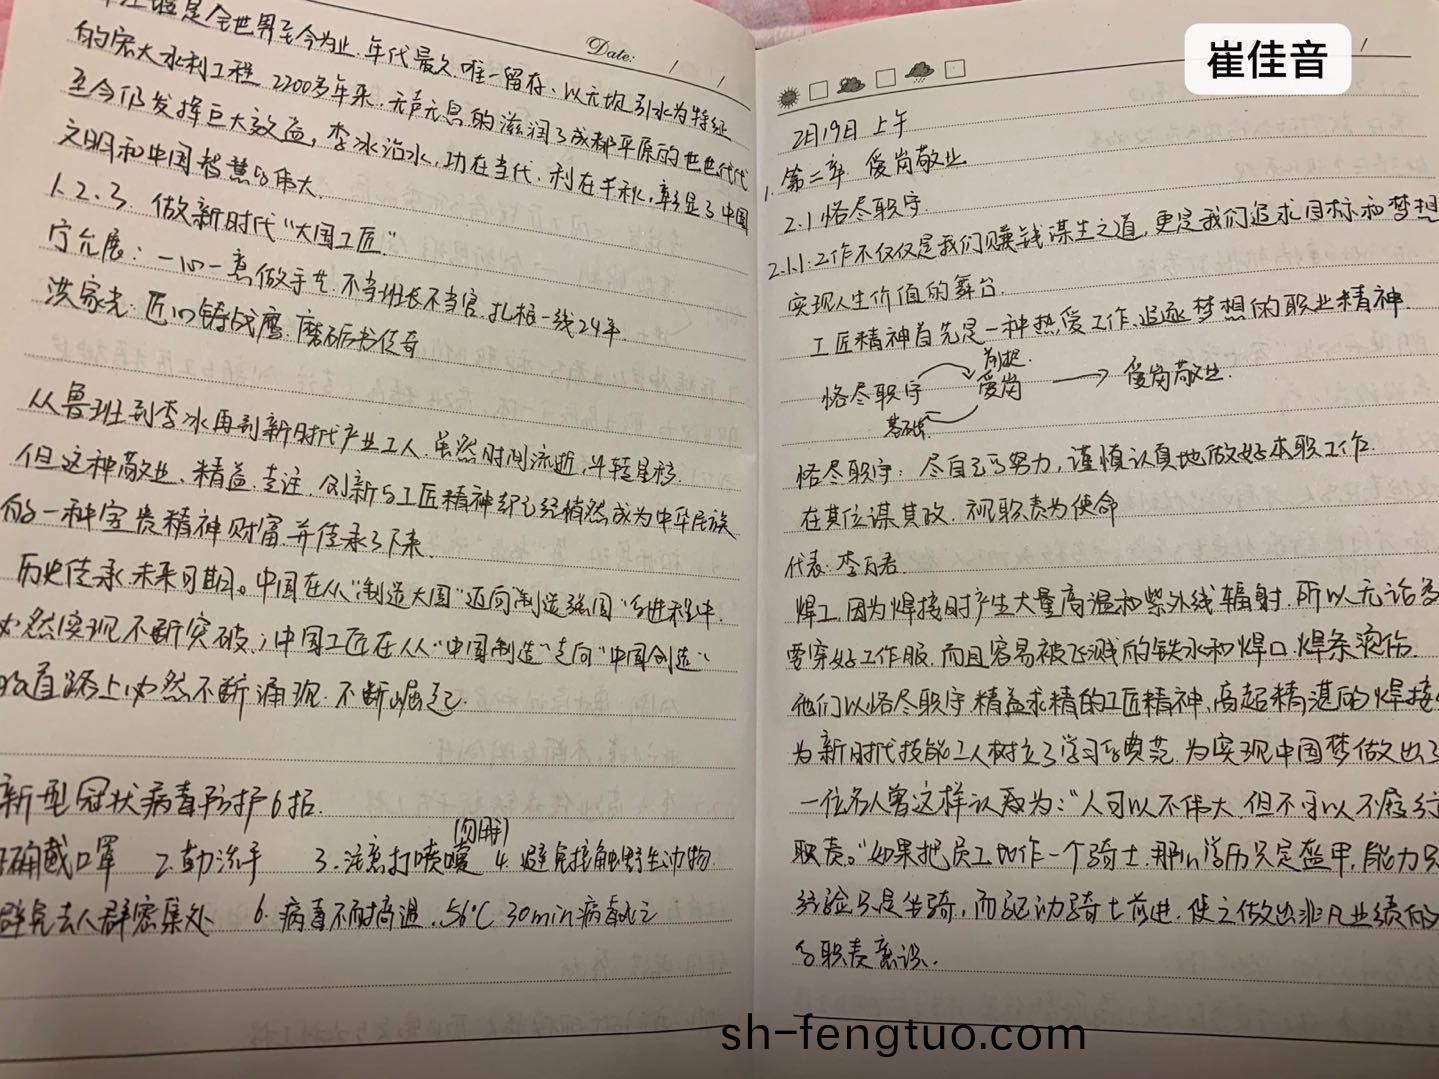 是全世界至今为止.年代最久.唯一留存、以无坝引水为特征
的宏大水利工程 2200多年来.无声无息的滋润了成都平原的世世代代
至今仍发挥巨大效益,李冰治水,功在当代.利在千秋,彰显了中国
文明和中国智慧的伟大.
1.2.3. 做新时代“大国工匠”
宁允展:一心一意做手艺.不当班长不当官.扎根一线24年.
洪家光:匠心铸战鹰.磨砺书传奇
从鲁班到李冰再到新时代产业工人.虽然时间流逝,斗转星移.
但这种敬业、精益.专注.创新的工匠精神却已经悄然成为中华民族
的一种宝贵精神财富.并传承了下来.
历史传承.未来可期。中国在从“制造大国”迈向“制造强国”的进程中.
必然实现不断突破,;中国工匠在从“中国制造”走向“中国创造”
的道路上必然不断涌现.不断崛起.
新型冠状病毒防护6招.
正确戴口罩 2.勤洗手 3.注意打喷嚏 4.避免接触野生动物
避免去人群密集处 6.病毒不耐高温.56℃ 30min病毒
Date: / /
崔佳音
/
2月19日 上午
1.第二章 爱岗敬业
2.1 恪尽职守.
2.1.1:工作不仅仅是我们赚钱谋生之道,更是我们追求目标和梦想
实现人生价值的舞台.
工匠精神首先是一种热爱工作、追逐梦想的职业精神.
前提.
恪尽职守 爱岗 → 爱岗敬业.
基础
恪尽职守:尽自己的努力,谨慎认真地做好本职工作.
在其位谋其政.视职责为使命
代表:李万君.
焊工.因为焊接时产生大量高温和紫外线辐射.所以无论多
要穿好工作服.而且容易被飞溅的铁水和焊口.焊条烫伤.
他们以恪尽职守.精益求精的工匠精神、高超精湛的焊接
为新时代技能工人树立了学习的典范.为实现中国梦做出了
一位名人曾这样认为:“人可以不伟大.但不可以不履行
职责。”如果把员工比作一个骑士.那么学历只是盔甲,能力只
经验只是坐骑,而驱动骑士前进.使之做出非凡业绩的
的职责意识.
sh-fengtuo.com